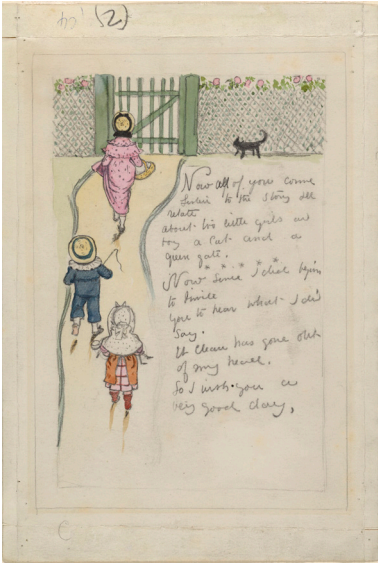 (2)
Now all of you come
listen to the Story Ill
relate
about two little girls one
boy a Cat and a
green gate.
* * * * *
Now Since I did begin
to
you to hear what I did
Say.
It Clean has gone out
of my head.
So I wish you a
very good day,